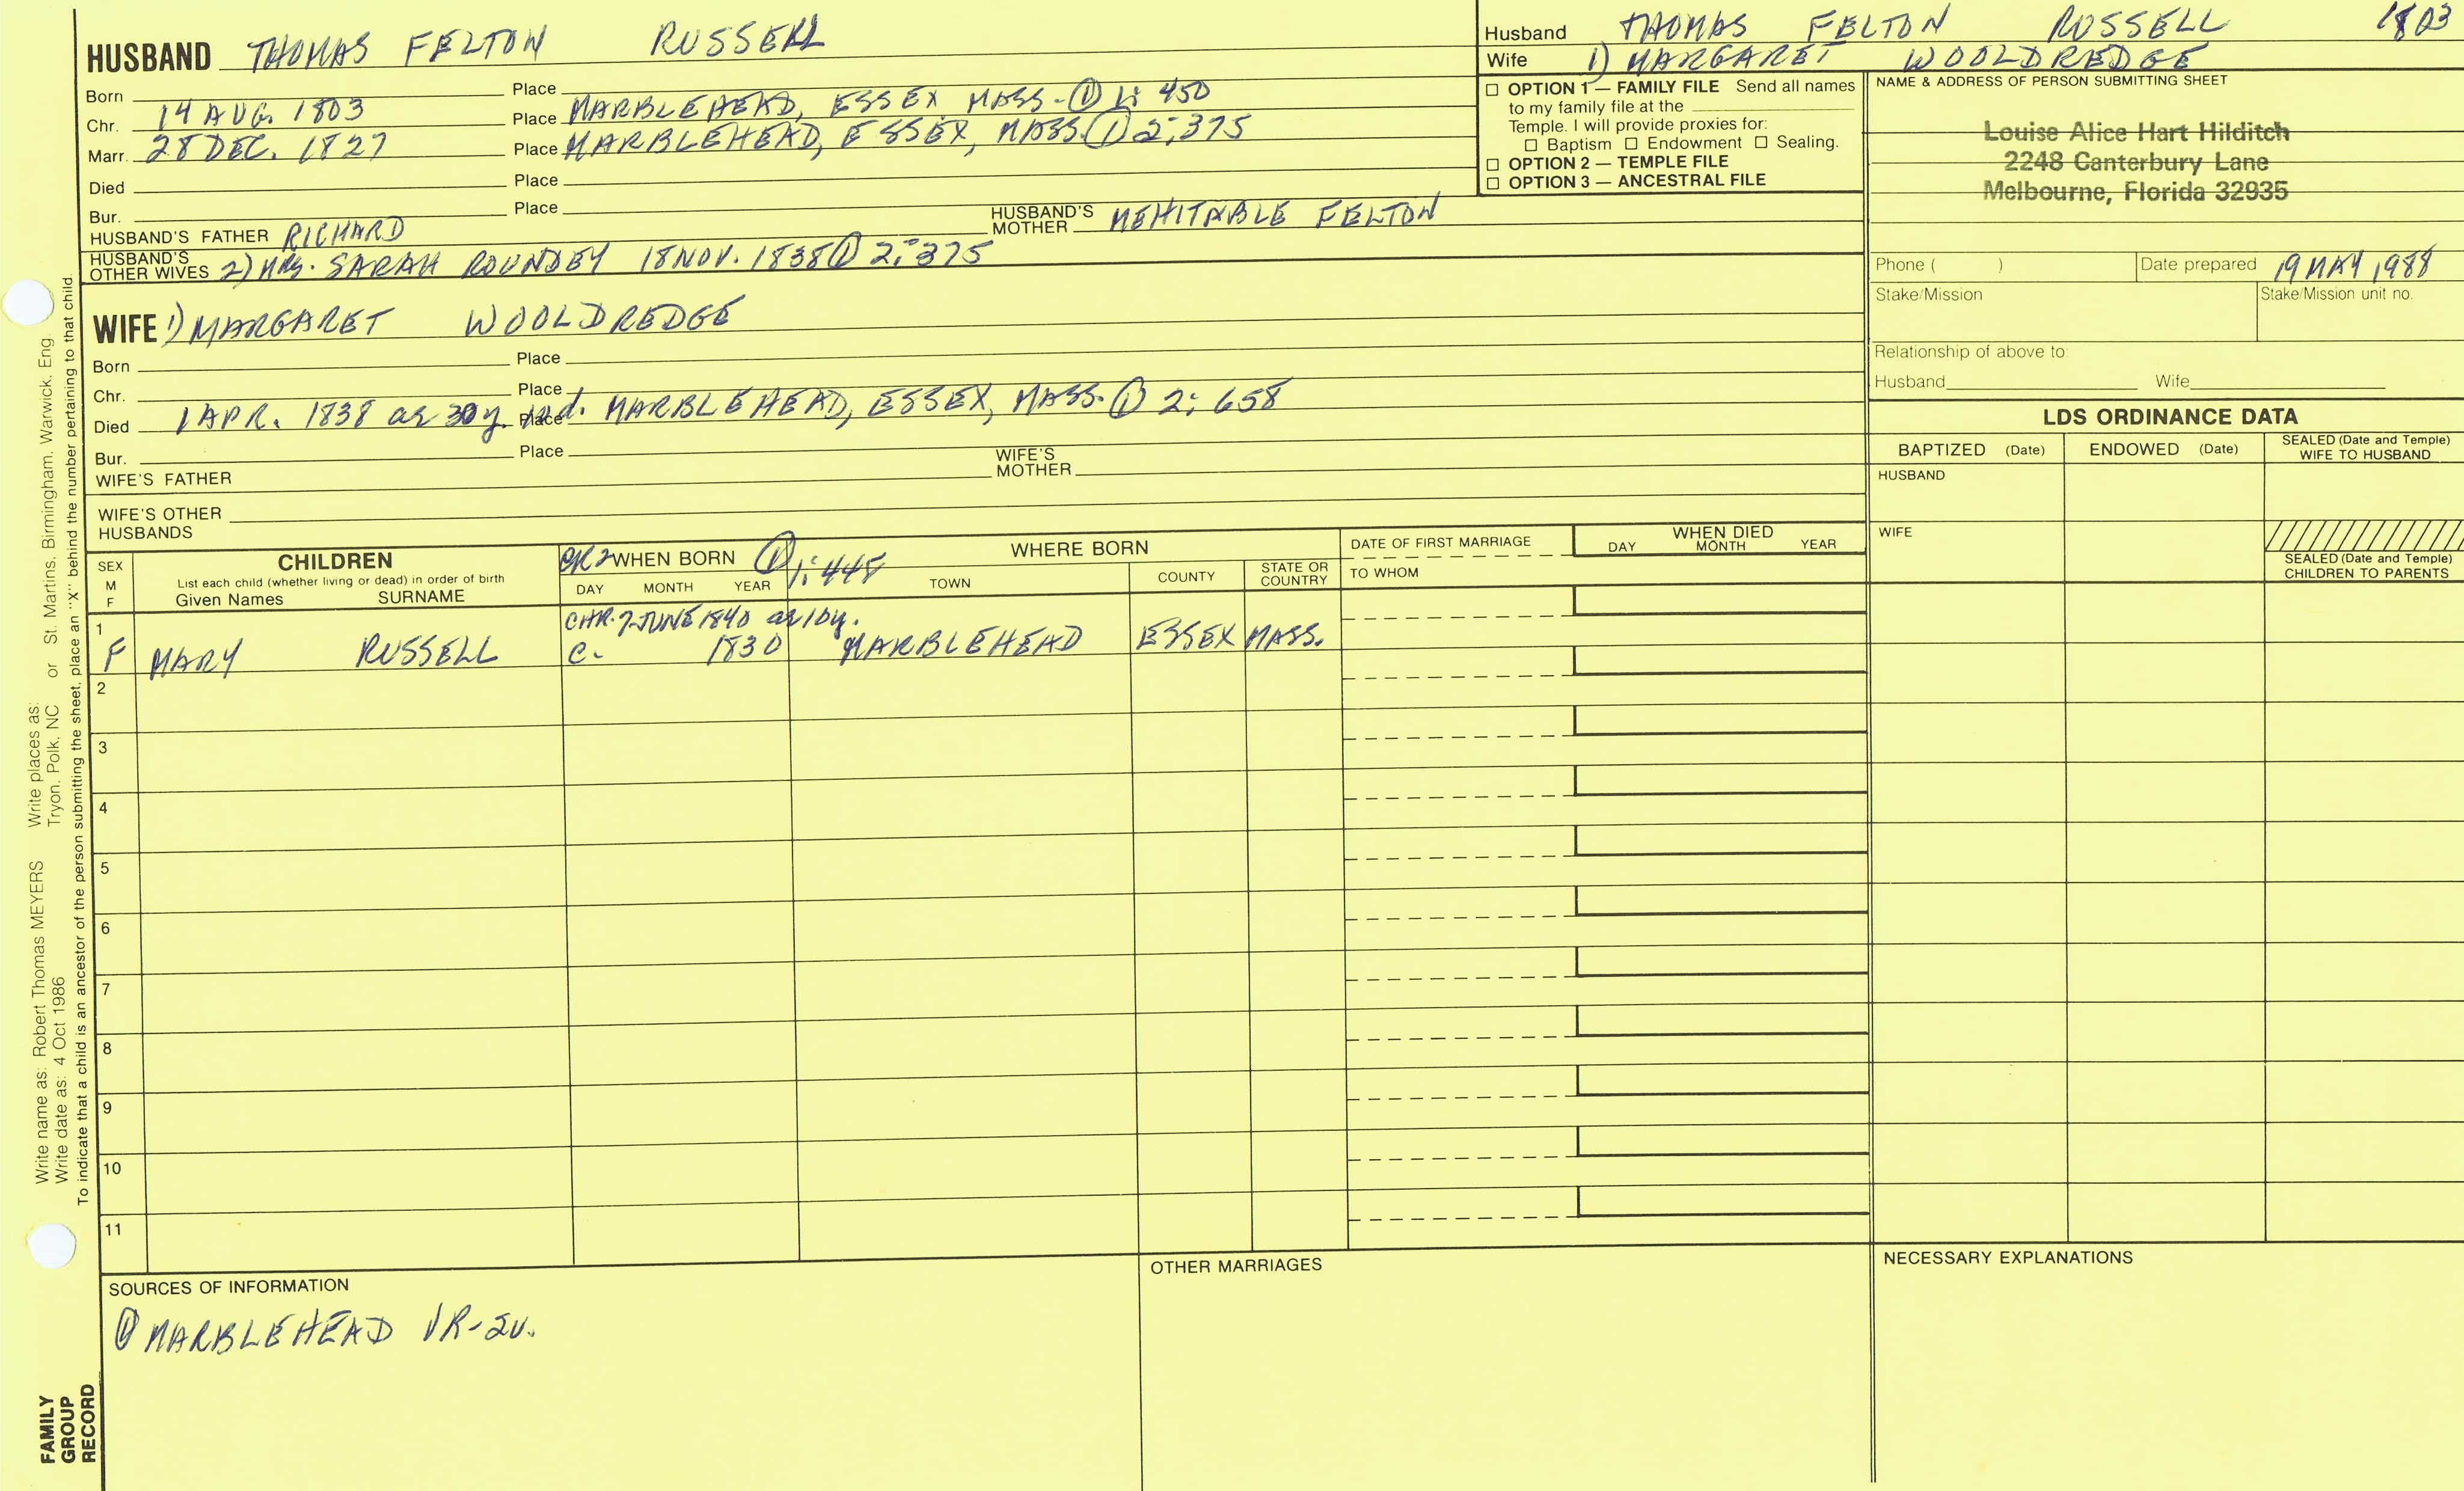 HUSBAND THOMAS FELTON RUSSELL
Born Place
Chr. 14 AUG. 1803 Place MARBLEHEAD, ESSEX MASS. ① 1: 450
Marr. 28 DEC. 1827 Place MARBLEHEAD, ESSEX, MASS. ① 2:375
Died Place
Bur. Place
HUSBAND'S FATHER RICHARD HUSBAND'S MOTHER MEHITABLE FELTON
HUSBAND'S OTHER WIVES 2) MRS. SARAH ROUNDEY 18 NOV. 1838 ① 2:375
WIFE 1) MARGARET WOOLDREDGE
Born Place
Chr. Place
Died 1 APR. 1838 ae 30 y. Place MARBLEHEAD, ESSEX, MASS. ① 2: 658
Bur. Place
WIFE'S FATHER WIFE'S MOTHER
WIFE'S OTHER HUSBANDS
Husband THOMAS FELTON RUSSELL 1803
Wife 1) MARGARET WOOLDREDGE
☐ OPTION 1 — FAMILY FILE Send all names
to my family file at the
Temple. I will provide proxies for:
☐ Baptism ☐ Endowment ☐ Sealing.
☐ OPTION 2 — TEMPLE FILE
☐ OPTION 3 — ANCESTRAL FILE
NAME & ADDRESS OF PERSON SUBMITTING SHEET
Louise Alice Hart Hilditch
2248 Canterbury Lane
Melbourne, Florida 32935
Phone ( ) Date prepared 19 MAY 1988
Stake/Mission Stake/Mission unit no.
Relationship of above to:
Husband Wife
LDS ORDINANCE DATA
BAPTIZED (Date) ENDOWED (Date) SEALED (Date and Temple) WIFE TO HUSBAND
HUSBAND
WIFE
SEALED (Date and Temple) CHILDREN TO PARENTS
SEX M F
CHILDREN
List each child (whether living or dead) in order of birth
Given Names SURNAME
CR2 WHEN BORN ① 1:448
DAY MONTH YEAR
WHERE BORN
TOWN COUNTY STATE OR COUNTRY
DATE OF FIRST MARRIAGE
TO WHOM
WHEN DIED
DAY MONTH YEAR
CHR. 7 JUNE 1840 ae 10y.
1 F MARY RUSSELL C. 1830 MARBLEHEAD ESSEX MASS.
2
3
4
5
6
7
8
9
10
11
SOURCES OF INFORMATION
① MARBLEHEAD VR-2v.
OTHER MARRIAGES
NECESSARY EXPLANATIONS
Write name as: Robert Thomas MEYERS Write places as: St. Martins, Birmingham, Warwick, Eng.
Write date as: 4 Oct 1986 Tryon, Polk, NC or
To indicate that a child is an ancestor of the person submitting the sheet, place an "X" behind the number pertaining to that child.
FAMILY
GROUP
RECORD